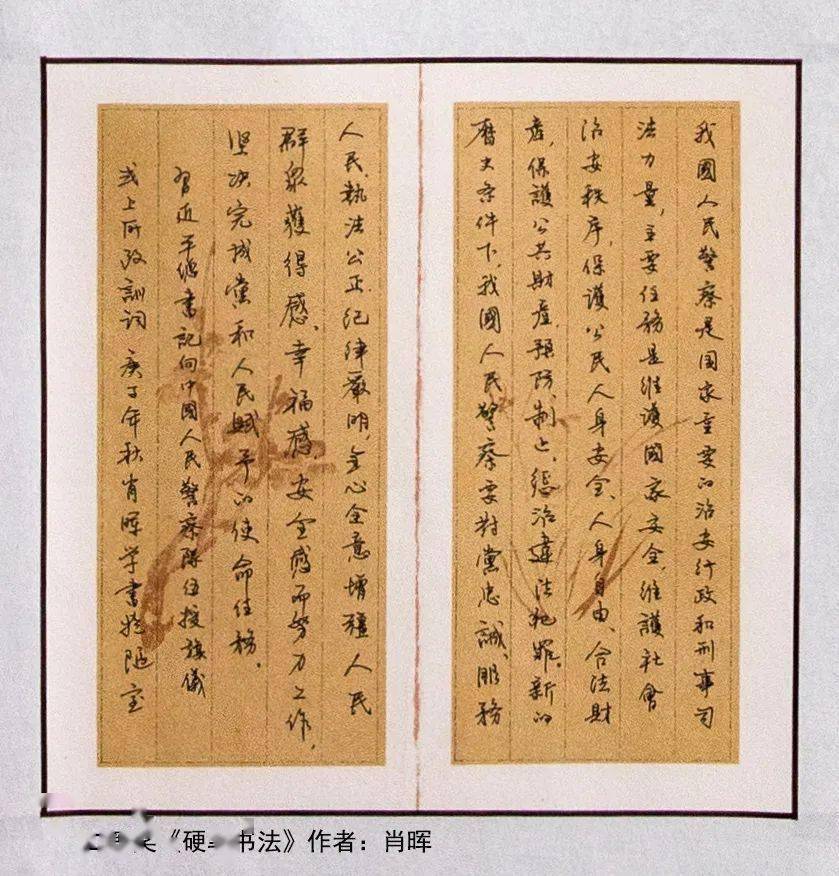 我國人民警察是国家重要的治安行政和刑事司
法力量，主要任務是維護國家安全，維護社會
治安秩序，保護公民人身安全、人身自由、合法財
產，保護公共財產，預防、制止、懲治違法犯罪。新的
歷史条件下，我國人民警察要對黨忠誠、服務
人民、執法公正、紀律嚴明，全心全意增强人民
群眾獲得感、幸福感、安全感而努力工作，
坚决完成黨和人民賦予的使命任務。
習近平總書記向中國人民警察隊伍授旗儀
式上所致訓詞 庚子年秋肖暉学書於陋室
《硬 书法》作者：肖晖